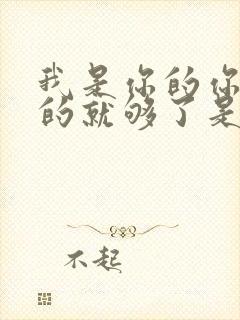 我是你的你
的就够了是
不起